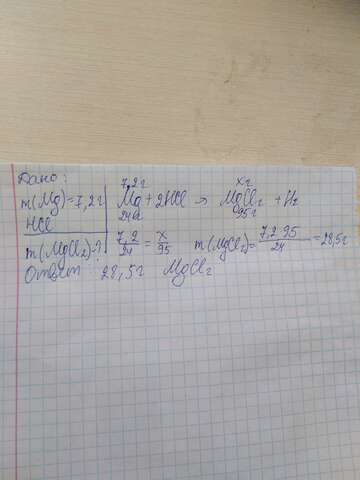 Дано:
m(Mg)=7,2г
HCl
m(MgCl₂)-?
7,2г хг
Mg + 2HCl → MgCl₂ + H₂
24г 95г
7,2/24 = x/95 m(MgCl₂)= 7,2 95/24 =28,5г
Ответ 28,5г MgCl₂